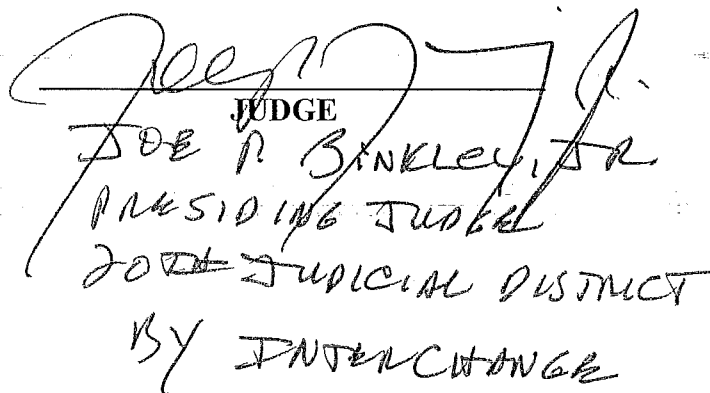 JUDGE
JOE P. BINKLEY, JR
PRESIDING JUDGE
20TH JUDICIAL DISTRICT
BY INTERCHANGE